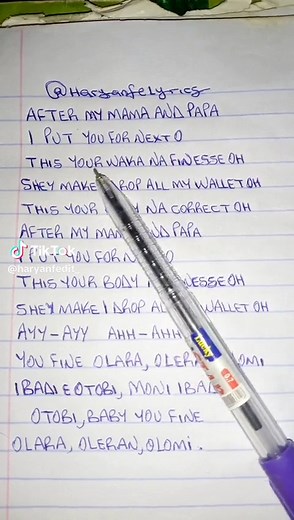 @HARYANFELYRICS
AFTER MY MAMA AND PAPA
I PUT YOU FOR NEXT O
THIS YOUR WAKA NA FINESSE OH
SHEY MAKE I DROP ALL MY WALLET OH
THIS YOUR NA CORRECT OH
AFTER MY AND PAPA
PUT YOU FOR
THIS YOUR BODY OH
SHEY MAKE I DROP WALLET OH
AYY-AYY AHH-AHH
YOU FINE OLARA,
IBADI E OTOBI, MONI
OTOBI, BABY YOU FINE
OLARA, OLERAN, OLOMI.
TikTok
@haryanfedit